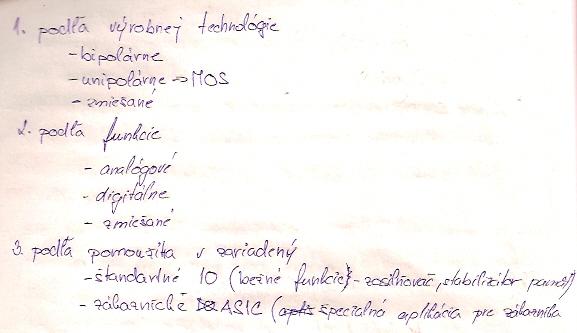 1. podľa výrobnej technológie
- bipolárne
- unipolárne → MOS
- zmiešané
2. podľa funkcie
- analógové
- digitálne
- zmiešané
3. podľa použitia v zariadený
- štandartné IO (bežné funkcie - zosilňovač, stabilizátor
- zákaznické ASIC (špecialna aplikácia pre zákazníka